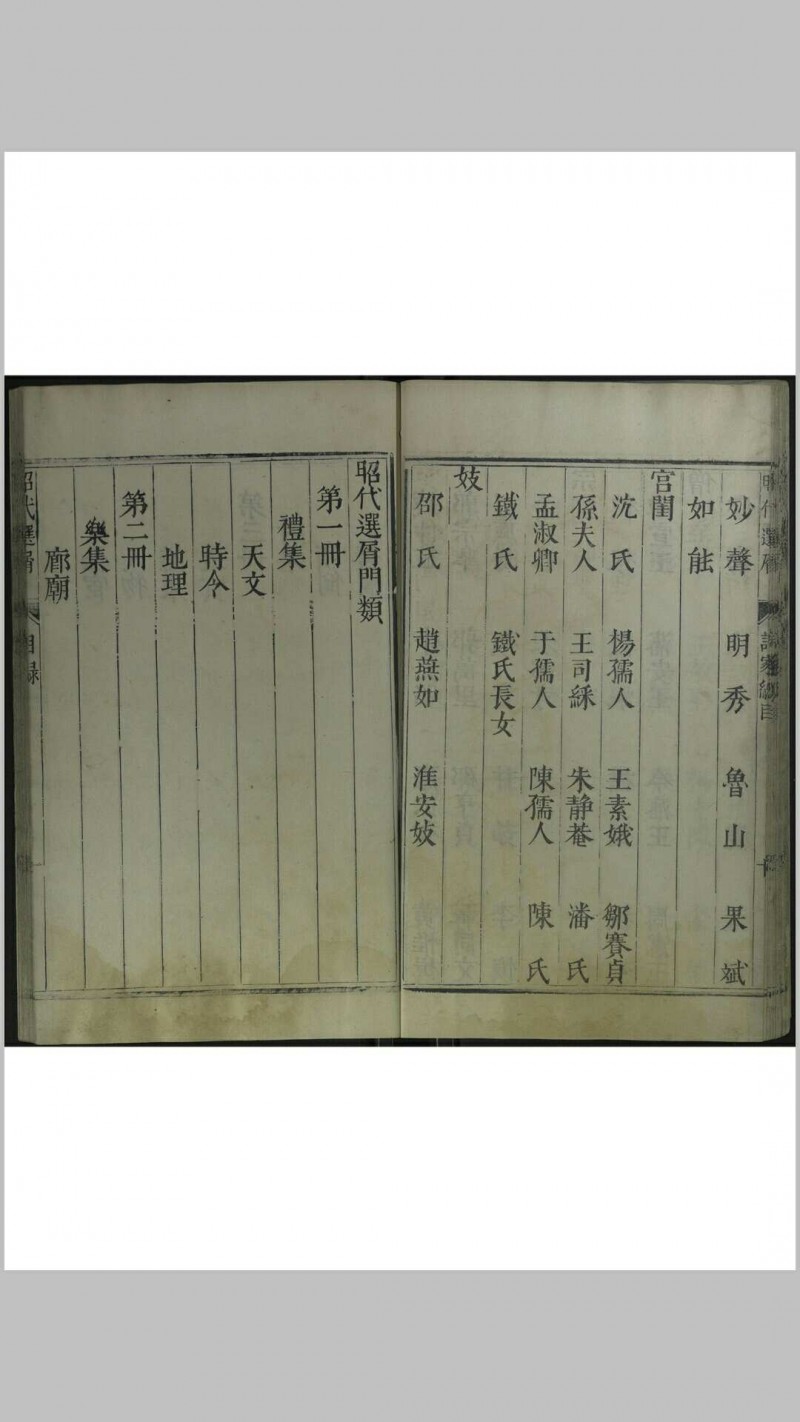 妙聲 明秀 魯山 果斌
如能
宫閨
沈氏 楊孺人 王素娥 鄒賽貞
孫夫人 王司綵 朱静菴 潘氏
孟淑卿 于孺人 陳孺人 陳氏
鐵氏 鐵氏長女
妓
邵氏 趙燕如 淮安妓
昭代選屑門類
第一冊
禮集
天文
時令
地理
第二冊
樂集
廊廟
昭代選屑 目録